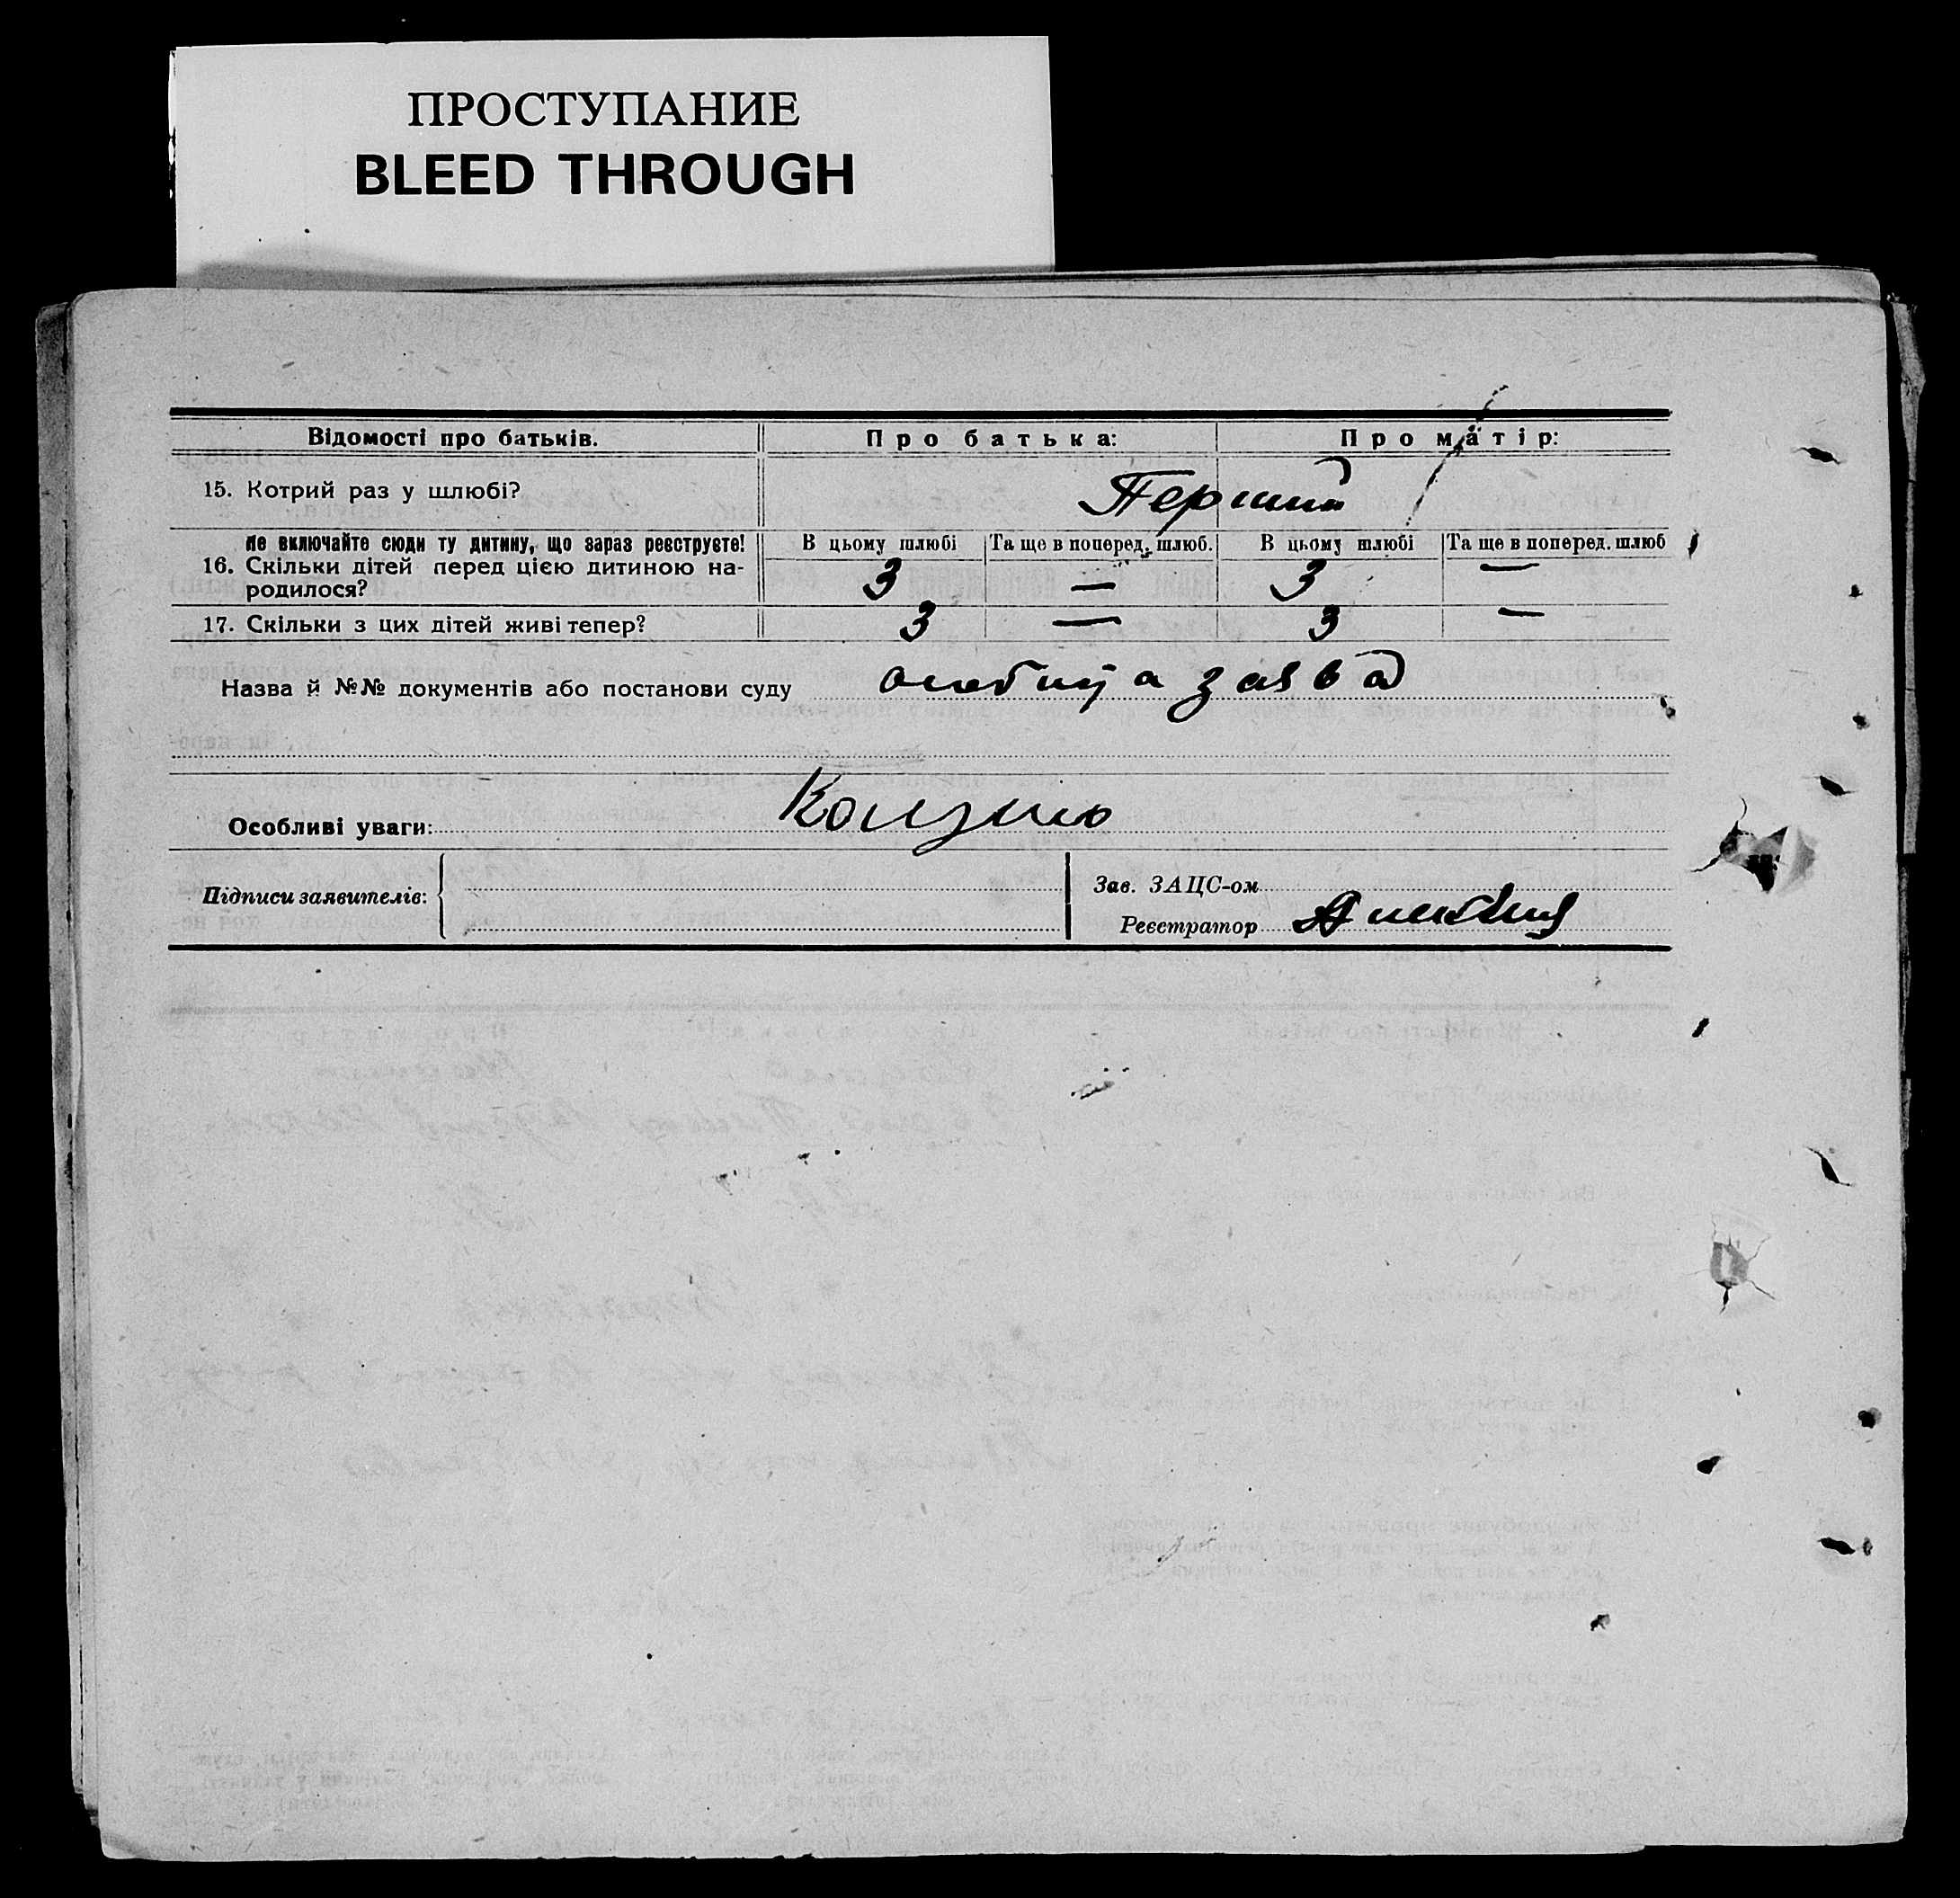 ПРОСТУПАНИЕ
BLEED THROUGH
Відомості про батьків. Про батька: Про матір:
15. Котрий раз у шлюбі? Перший
Не включайте сюди ту дитину, що зараз реєструєте! В цьому шлюбі Та ще в поперед. шлюб. В цьому шлюбі Та ще в поперед. шлюб
16. Скільки дітей перед цією дитиною на- 3 — 3 —
родилося?
17. Скільки з цих дітей живі тепер? 3 — 3 —
Назва й №№ документів або постанови суду заява
Особливі уваги:
Підписи заявителів: Зав. ЗАЦС-ом
Реєстратор